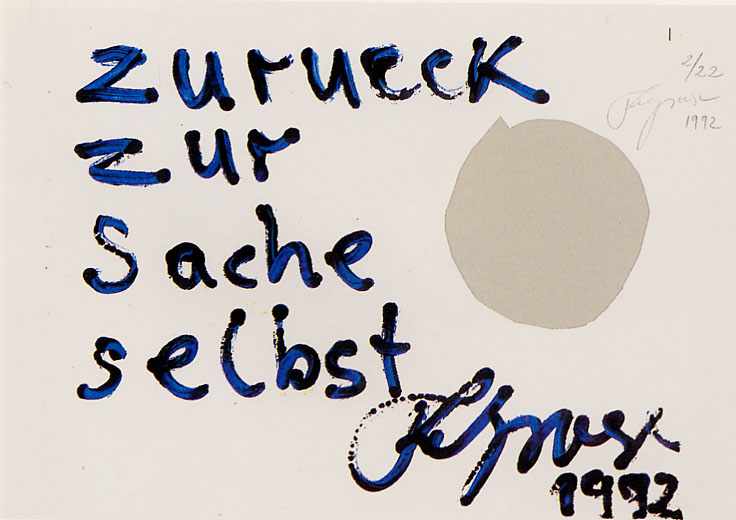 zurueck
2/22
1992
zur
Sache
selbst
1992